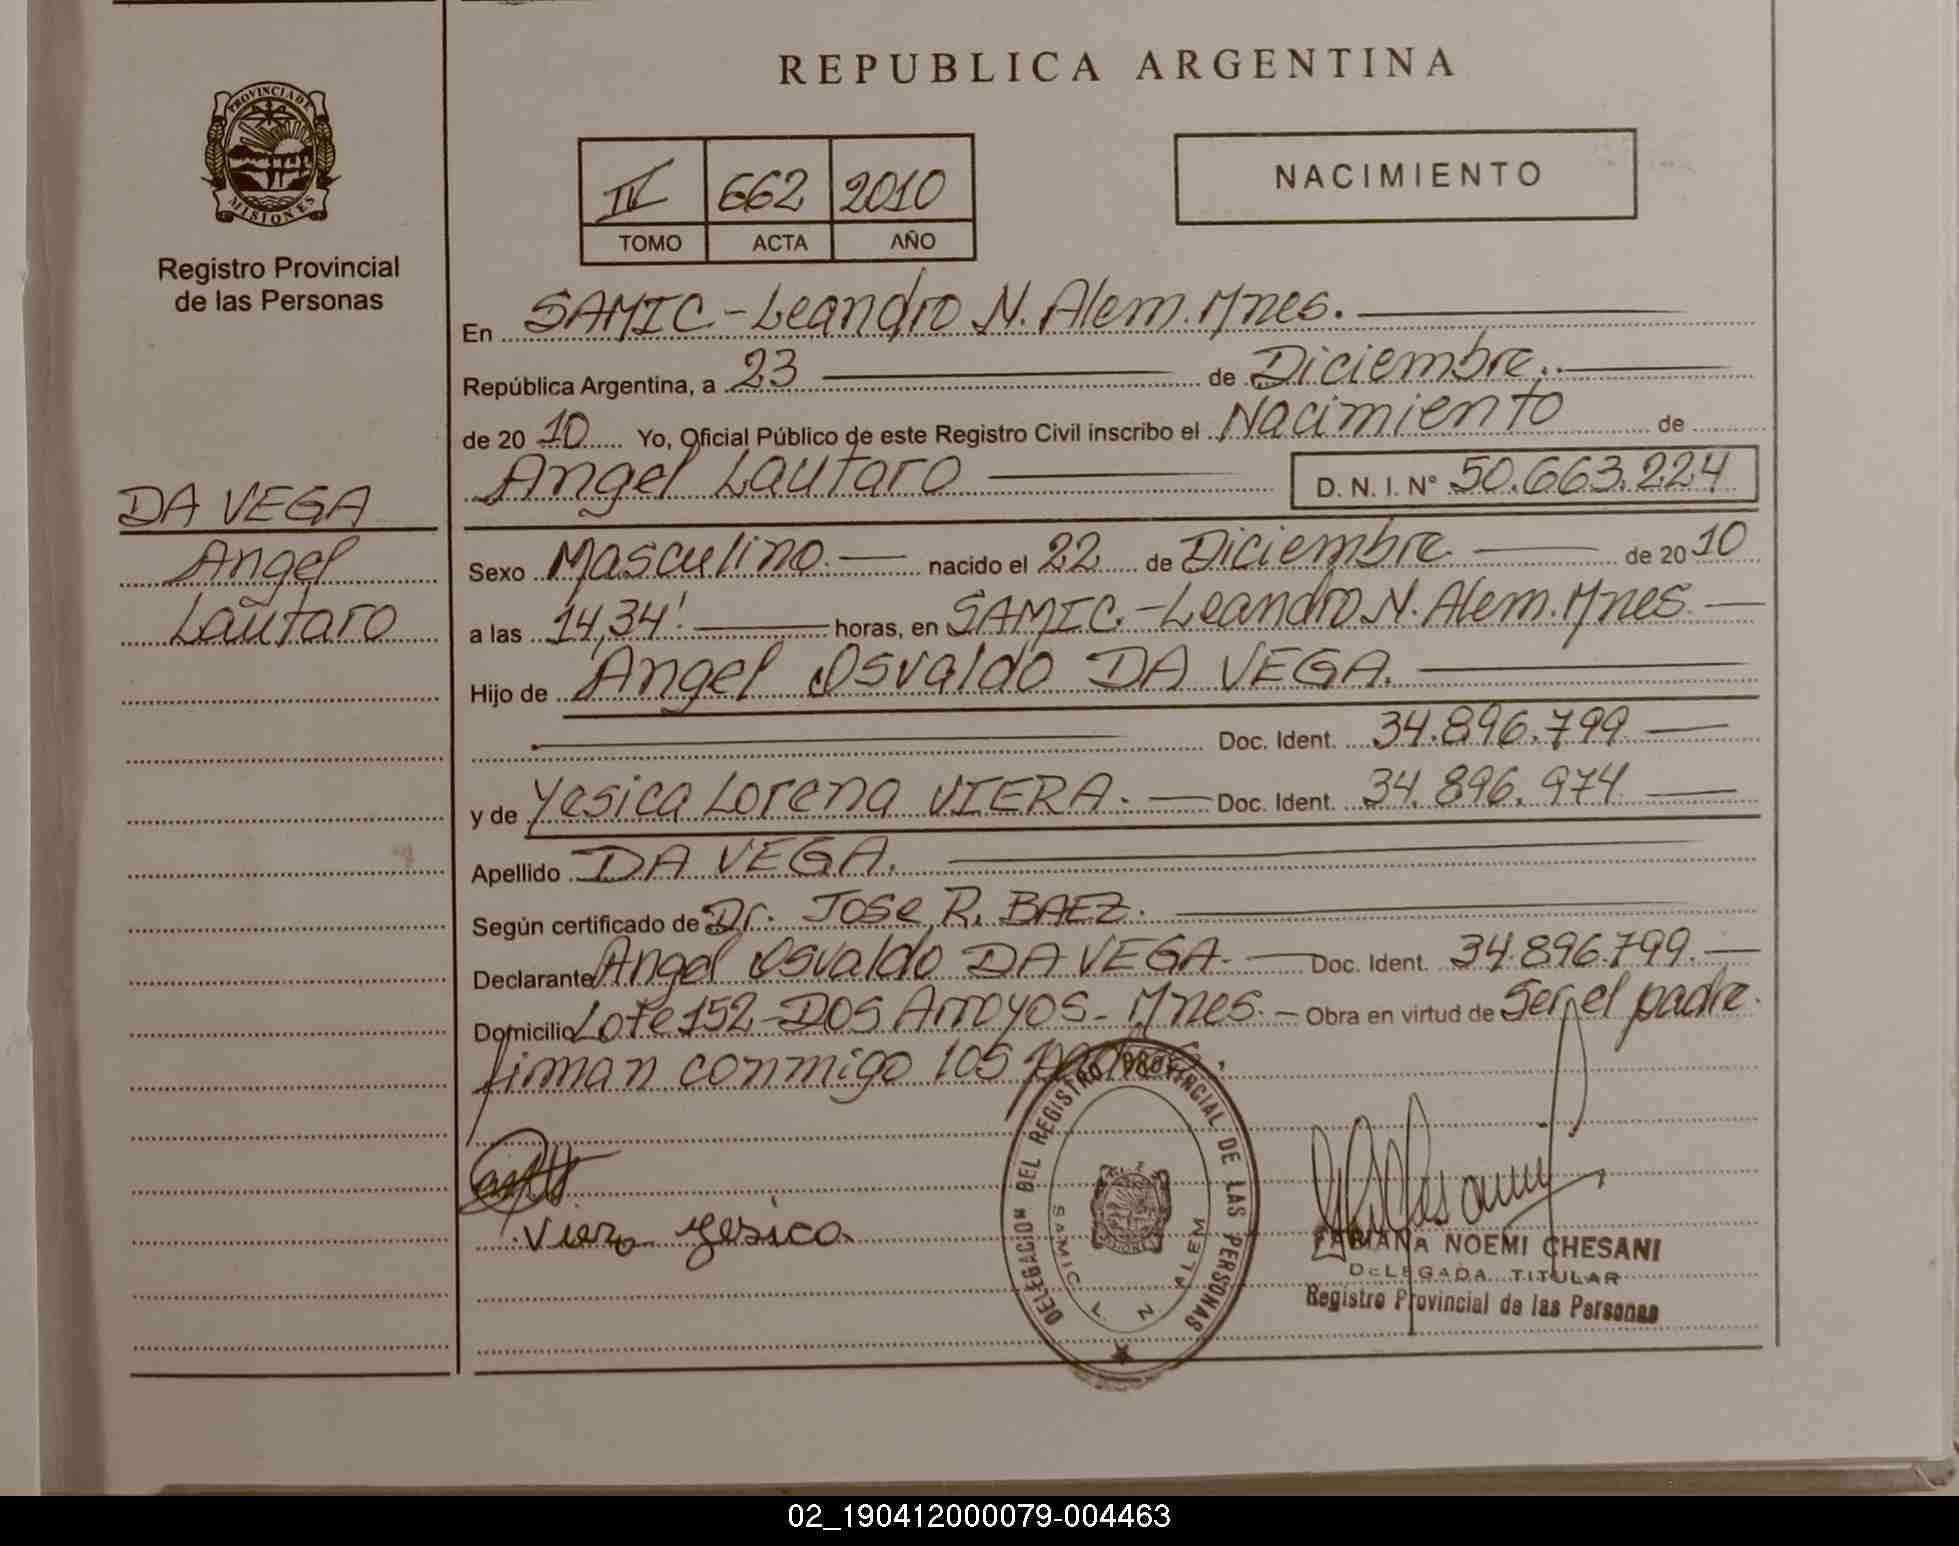 REPUBLICA ARGENTINA
PROVINCIA DE
MISIONES
Registro Provincial
de las Personas
IV 662 2010
TOMO ACTA AÑO
NACIMIENTO
DA VEGA
Angel
Lautaro
En SAMIC.-Leandro N. Alem. Mnes.
República Argentina, a 23 de Diciembre.
de 20 10 Yo, Oficial Público de este Registro Civil inscribo el Nacimiento de
Angel Lautaro D. N. I. Nº 50.663.224
Sexo Masculino. nacido el 22 de Diciembre de 20 10
a las 14,34' horas, en SAMIC.-Leandro N. Alem. Mnes
Hijo de Angel Osvaldo DA VEGA.
Doc. Ident. 34.896.799
y de Yesica Lorena VIERA. Doc. Ident. 34.896.974
Apellido DA VEGA.
Según certificado de Dr. Jose R. BAEZ.
Declarante Angel Osvaldo DA VEGA. Doc. Ident. 34.896.799.
Domicilio Lote 152-DOS Arroyos- Mnes. Obra en virtud de Ser el padre.
firman conmigo los
Viera Yesica
DELEGACION DEL REGISTRO PROVINCIAL DE LAS PERSONAS
SAMIC L. N. ALEM
FABIANA NOEMI CHESANI
DELEGADA TITULAR
Registro Provincial de las Personas
02_190412000079-004463